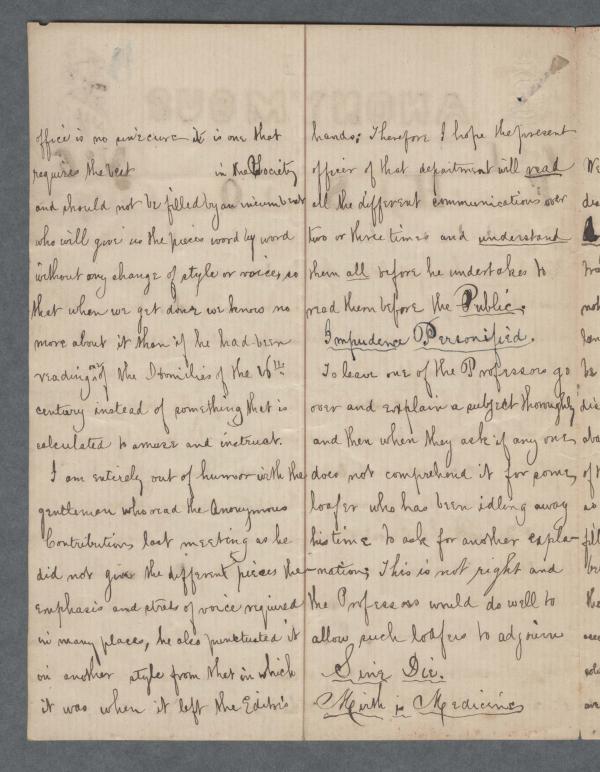 office is no sinecure it is one that
requires the best in the Society
and should not be filled by an incumbent
who will give us the pieces word by word
without any change of style or voice, so
that when we get done we know no
more about it than if he had been
reading one of the Homilies of the 16th
century instead of something that is
calculated to amuse and instruct.
I am entirely out of humor with the
gentleman who read the Anonymous
Contributions last meeting as he
did not give the different pieces the
emphasis and stress of voice required
in many places, he also punctuated it
on another style from that in which
it was when it left the Editor's
hands; Therefore I hope the present
officer of that department will read
all the different communications over
two or three times and understand
them all before he undertakes to
read them before the Public.
Impudence Personified.
To leave one of the Professors go
over and explain a subject thoroughly
and then when they ask if any one
does not comprehend it for some
loafer who has been idling away
his time to ask for another expla-
-nation; This is not right and
the Professors would do well to
allow such loafers to adjourn
Sine Die.
Mirth is Medicine